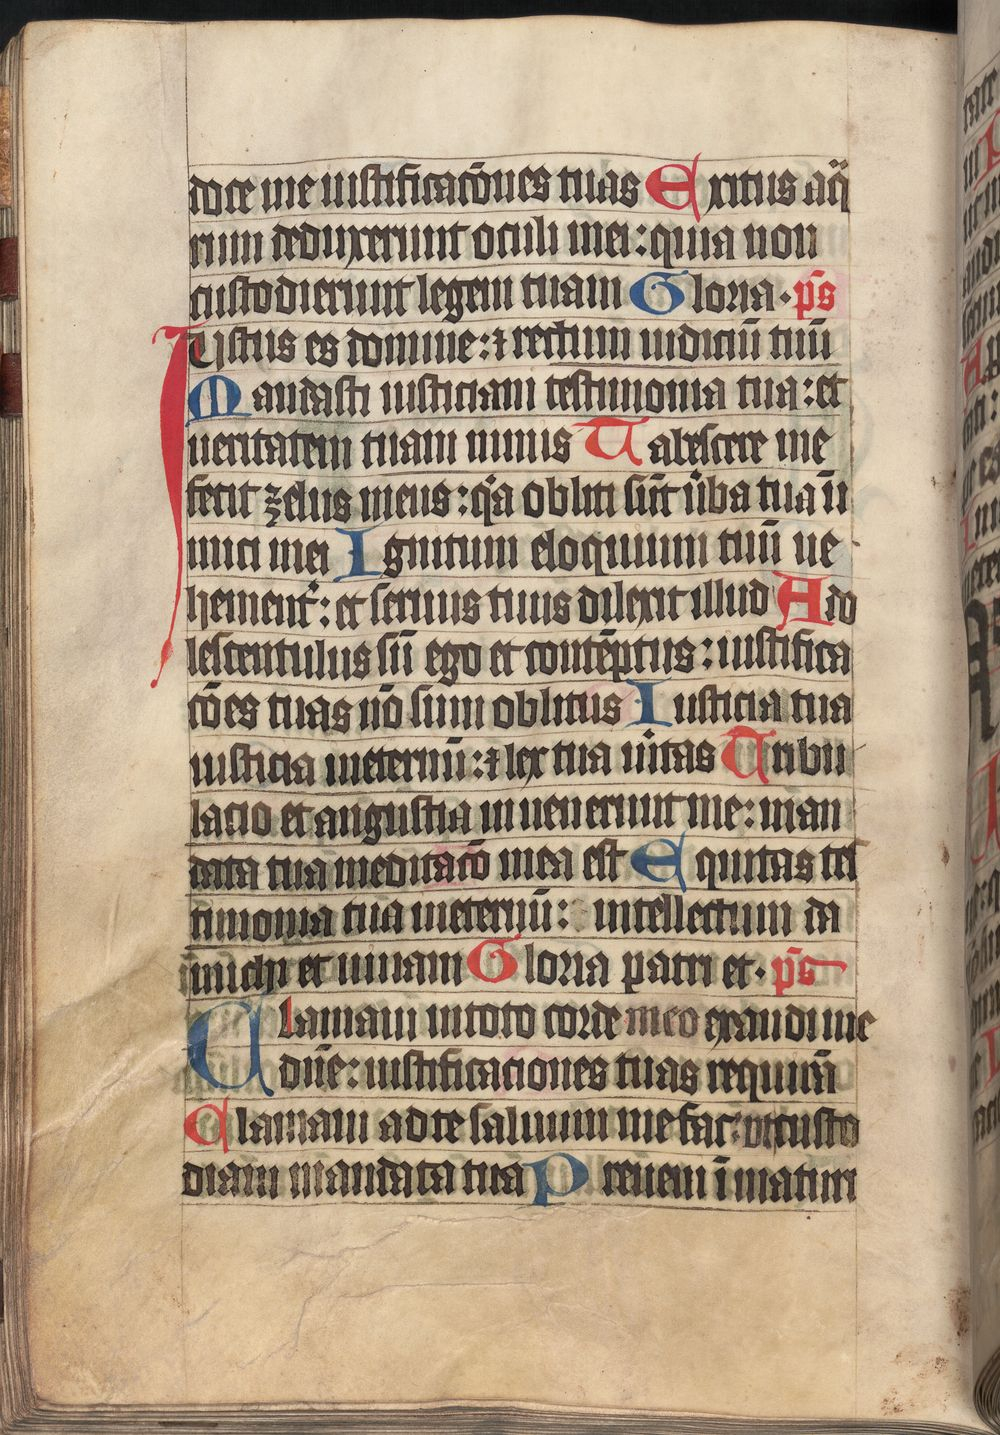 doce me iustificac̄ones tuas Exitus aq̈
rum deduxerunt oculi mei: quia non
custodierunt legem tuam Gloria · p̄s
Iustus es domine: ⁊ rectum iudiciū tuū
Mandasti iusticiam testimonia tua: et
ueritatem tuam nimis Tabescere me
fecit zelus meus: q̇a obliti sūt ūba tua īi
mici mei Ignitum eloquium tuū ue
hement̉: et seruus tuus dilexit illud Ado
lescentulus sū ego et contēptus: iustifica
cōes tuas nō sum oblitus Iusticia tua
iusticia ineternū: ⁊ lex tua ūitas Tribu
lacio et angustia inuenerunt me: man
data tua meditac̄o mea est Equitas tes
timonia tua ineternū: intellectum da
michi et uiuam Gloria patri et · p̄s
Clamaui intoto corde meo exaudi me
dn̄e: iustificaciones tuas requirā
Clamaui ad te saluum me fac: ut custo
diam mandata tua Preueni ī maturi